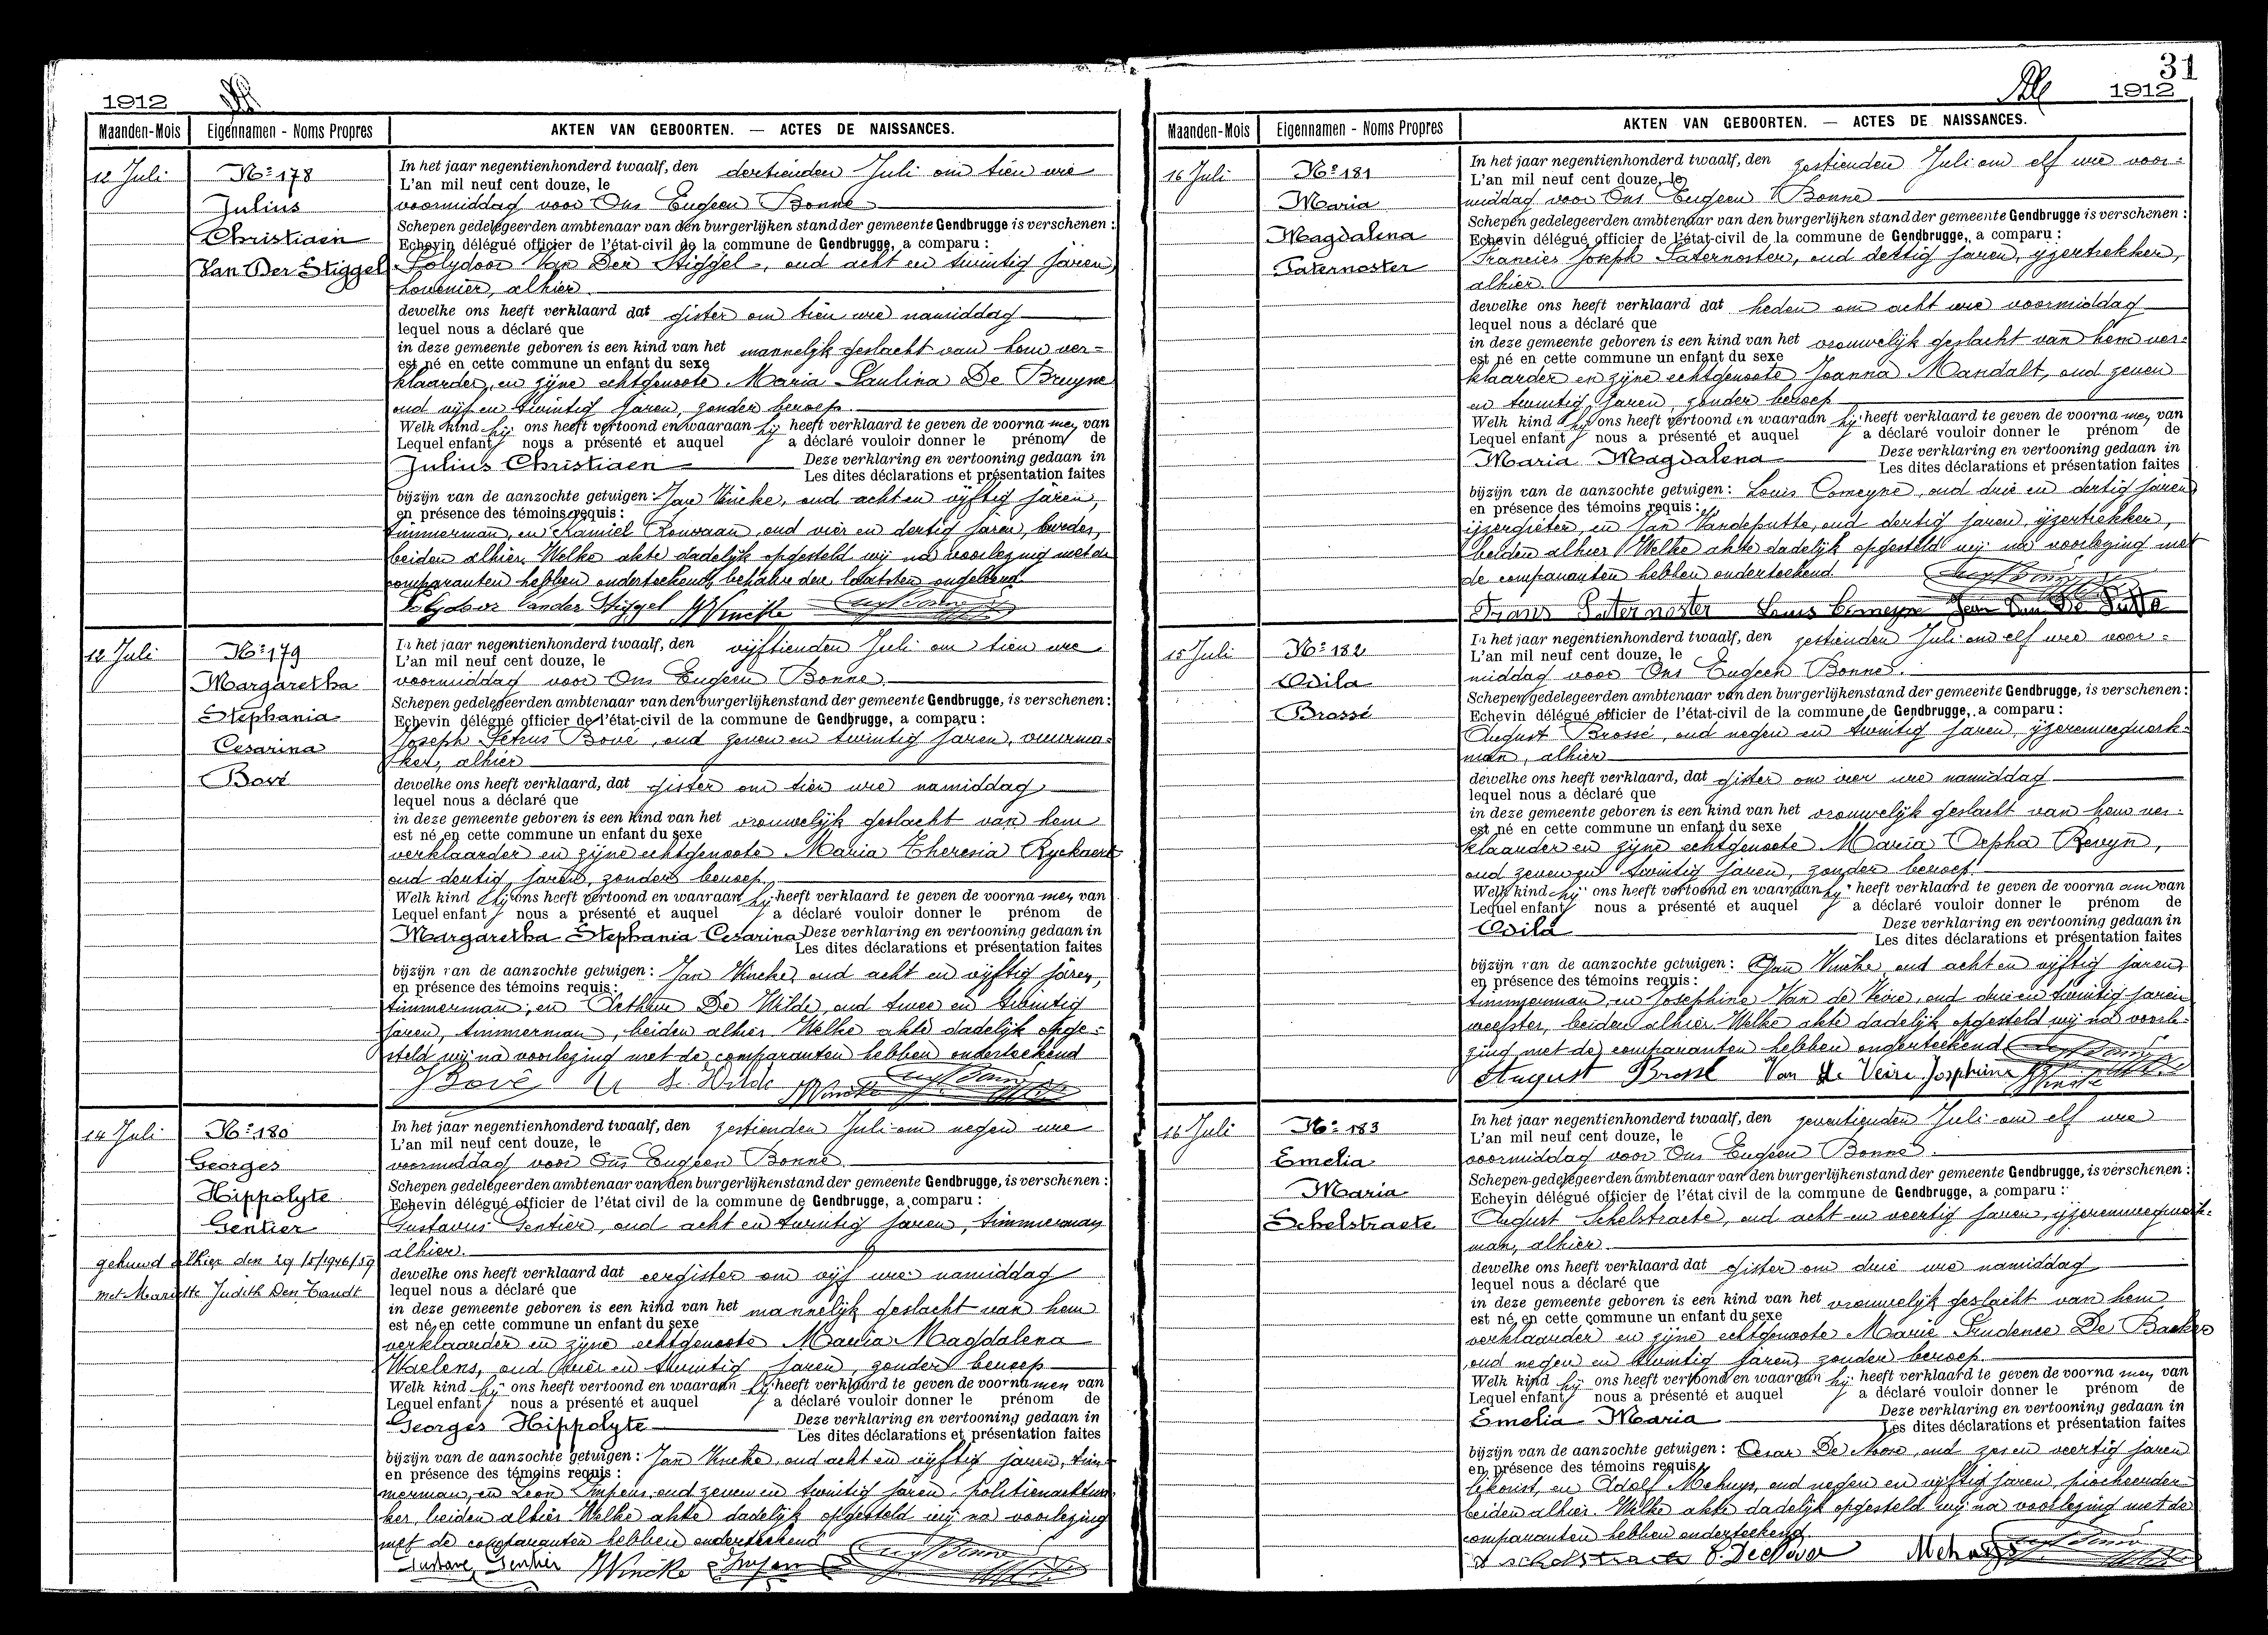 1912
Maanden-Mois
Eigennamen - Noms Propres
AKTEN VAN GEBOORTEN. — ACTES DE NAISSANCES.
12 Juli
No 178
Julius
Christiaen
Van Der Stiggel
In het jaar negentienhonderd twaalf, den dertienden Juli om tien ure
L'an mil neuf cent douze, le
voormiddag voor Ons Eugeen Bonne
Schepen gedelegeerden ambtenaar van den burgerlijken stand der gemeente Gendbrugge is verschenen :
Echevin délégué officier de l'état-civil de la commune de Gendbrugge, a comparu :
Polydoor Van Der Stiggel, oud acht en twintig jaren,
hovenier, alhier
dewelke ons heeft verklaard dat gister om tien ure namiddag
lequel nous a déclaré que
in deze gemeente geboren is een kind van het mannelijk geslacht van hem ver=
est né en cette commune un enfant du sexe
klaarder, en zijne echtgenoote Maria Paulina De Bruyne
oud vijf en twintig jaren, zonder beroep.
Welk kind hij ons heeft vertoond en waaraan hij heeft verklaard te geven de voorna men van
Lequel enfant nous a présenté et auquel a déclaré vouloir donner le prénom de
Julius Christiaen Deze verklaring en vertooning gedaan in
Les dites déclarations et présentation faites
bijzijn van de aanzochte getuigen : Jan Vincke, oud acht en vijftig jaren,
en présence des témoins requis :
timmerman, en Kamiel , oud vier en dertig jaren,
beiden alhier. Welke akte dadelijk opgesteld wij na voorlezing met de
comparanten hebben onderteekend, behalve den laatsten ongeleerd.
Polydoor Vander Stiggel JVincke
12 Juli
No 179
Margaretha
Stephania
Cesarina
Bové
In het jaar negentienhonderd twaalf, den vijftienden Juli om tien ure
L'an mil neuf cent douze, le
voormiddag voor Ons Eugeen Bonne.
Schepen gedelegeerden ambtenaar van den burgerlijkenstand der gemeente Gendbrugge, is verschenen :
Echevin délégué officier de l'état-civil de la commune de Gendbrugge, a comparu :
Joseph Petrus Bové, oud zeven en twintig jaren, vuurma=
ker, alhier
dewelke ons heeft verklaard, dat gister om tien ure namiddag
lequel nous a déclaré que
in deze gemeente geboren is een kind van het vrouwelijk geslacht van hem
est né en cette commune un enfant du sexe
verklaarder en zijne echtgenoote Maria Theresia Ryckaert
oud dertig jaren, zonder beroep.
Welk kind hij ons heeft vertoond en waaraan hij heeft verklaard te geven de voorna men van
Lequel enfant nous a présenté et auquel a déclaré vouloir donner le prénom de
Margaretha Stephania Cesarina Deze verklaring en vertooning gedaan in
Les dites déclarations et présentation faites
bijzijn van de aanzochte getuigen : Jan Vincke, oud acht en vijftig jaren,
en présence des témoins requis :
timmerman, en Arthur De Wilde, oud twee en twintig
jaren, timmerman, beiden alhier Welke akte dadelijk opge=
steld wij na voorlezing met de comparanten hebben onderteekend
J Bové De Wilde JVincke
14 Juli
No 180
Georges
Hippolyte
Gentier
gehuwd alhier den 29/5/1946/59
met Mariette Judith Den Tandt
In het jaar negentienhonderd twaalf, den zestienden Juli om negen ure
L'an mil neuf cent douze, le
voormiddag voor Ons Eugeen Bonne
Schepen gedelegeerden ambtenaar van den burgerlijkenstand der gemeente Gendbrugge, is verschenen :
Echevin délégué officier de l'état civil de la commune de Gendbrugge, a comparu :
Gustavus Gentier, oud acht en twintig jaren, timmerman
alhier.
dewelke ons heeft verklaard dat eergister om vijf ure namiddag
lequel nous a déclaré que
in deze gemeente geboren is een kind van het mannelijk geslacht van hem
est né en cette commune un enfant du sexe
verklaarder en zijne echtgenoote Maria Magdalena
Waelens, oud vier en twintig jaren, zonder beroep
Welk kind hij ons heeft vertoond en waaraan hij heeft verklaard te geven de voorna men van
Lequel enfant nous a présenté et auquel a déclaré vouloir donner le prénom de
Georges Hippolyte Deze verklaring en vertooning gedaan in
Les dites déclarations et présentation faites
bijzijn van de aanzochte getuigen : Jan Vincke, oud acht en vijftig jaren, tim=
en présence des témoins requis :
merman, en Leon Impens, oud zeven en twintig jaren,
ker, beiden alhier Welke akte dadelijk opgesteld wij na voorlezing
met de comparanten hebben onderteekend
Gustave Gentier JVincke Impens
31
1912
Maanden-Mois
Eigennamen - Noms Propres
AKTEN VAN GEBOORTEN. — ACTES DE NAISSANCES.
16 Juli
No 181
Maria
Magdalena
Paternoster
In het jaar negentienhonderd twaalf, den zestienden Juli om elf ure voor=
L'an mil neuf cent douze, le
middag voor Ons Eugeen Bonne
Schepen gedelegeerden ambtenaar van den burgerlijken stand der gemeente Gendbrugge is verschenen :
Echevin délégué officier de l'état-civil de la commune de Gendbrugge, a comparu :
Francies Joseph Paternoster, oud dertig jaren, ijzertrekker,
alhier.
dewelke ons heeft verklaard dat heden om acht ure voormiddag
lequel nous a déclaré que
in deze gemeente geboren is een kind van het vrouwelijk geslacht van hem ver=
est né en cette commune un enfant du sexe
klaarder en zijne echtgenoote Joanna Mandalt, oud zeven
en twintig jaren, zonder beroep
Welk kind hij ons heeft vertoond en waaraan hij heeft verklaard te geven de voorna men van
Lequel enfant nous a présenté et auquel a déclaré vouloir donner le prénom de
Maria Magdalena Deze verklaring en vertooning gedaan in
Les dites déclarations et présentation faites
bijzijn van de aanzochte getuigen : Louis Comeyne, oud drie en dertig jaren
en présence des témoins requis :
ijzergieter, en Jan Vandeputte, oud dertig jaren, ijzertrekker,
beiden alhier Welke akte dadelijk opgesteld wij na voorlezing met
de comparanten hebben onderteekend
Frans Paternoster Louis Comeyne Jean Van De Putte
15 Juli
No 182
Odila
Brossé
In het jaar negentienhonderd twaalf, den zestienden Juli om elf ure voor=
L'an mil neuf cent douze, le
middag voor Ons Eugeen Bonne.
Schepen gedelegeerden ambtenaar van den burgerlijkenstand der gemeente Gendbrugge, is verschenen :
Echevin délégué officier de l'état-civil de la commune de Gendbrugge, a comparu :
August Brossé, oud negen en twintig jaren, ijzerenwegwerk=
man, alhier
dewelke ons heeft verklaard, dat gister om vier ure namiddag
lequel nous a déclaré que
in deze gemeente geboren is een kind van het vrouwelijk geslacht van hem ver=
est né en cette commune un enfant du sexe
klaarder en zijne echtgenoote Maria Orpha Revyn,
oud zeven en twintig jaren, zonder beroep.
Welk kind hij ons heeft vertoond en waaraan hij heeft verklaard te geven de voorna am van
Lequel enfant nous a présenté et auquel a déclaré vouloir donner le prénom de
Odila Deze verklaring en vertooning gedaan in
Les dites déclarations et présentation faites
bijzijn van de aanzochte getuigen : Jan Vincke, oud acht en vijftig jaren,
en présence des témoins requis :
timmerman, en Josephine Van de Veire, oud drie en twintig jaren
weefster, beiden alhier Welke akte dadelijk opgesteld wij na voorle=
zing met de comparanten hebben onderteekend
August Brossé Van de Veire Josephine JVincke
16 Juli
No 183
Emelia
Maria
Schelstraete
In het jaar negentienhonderd twaalf, den zeventienden Juli om elf ure
L'an mil neuf cent douze, le
voormiddag voor Ons Eugeen Bonne.
Schepen gedelegeerden ambtenaar van den burgerlijkenstand der gemeente Gendbrugge, is verschenen :
Echevin délégué officier de l'état civil de la commune de Gendbrugge, a comparu :
August Schelstraete, oud acht en veertig jaren, ijzerenwegwerk=
man, alhier.
dewelke ons heeft verklaard dat gister om drie ure namiddag
lequel nous a déclaré que
in deze gemeente geboren is een kind van het vrouwelijk geslacht van hem
est né en cette commune un enfant du sexe
verklaarder en zijne echtgenoote Marie Prudence De Backer
oud negen en twintig jaren, zonder beroep
Welk kind hij ons heeft vertoond en waaraan hij heeft verklaard te geven de voorna men van
Lequel enfant nous a présenté et auquel a déclaré vouloir donner le prénom de
Emelia Maria Deze verklaring en vertooning gedaan in
Les dites déclarations et présentation faites
bijzijn van de aanzochte getuigen : Cesar De Moor, oud zes en veertig jaren
en présence des témoins requis :
en Adolf Mehuys, oud negen en vijftig jaren,
beiden alhier. Welke akte dadelijk opgesteld wij na voorlezing met de
comparanten hebben onderteekend.
A Schelstraete C. De Moor Mehuys